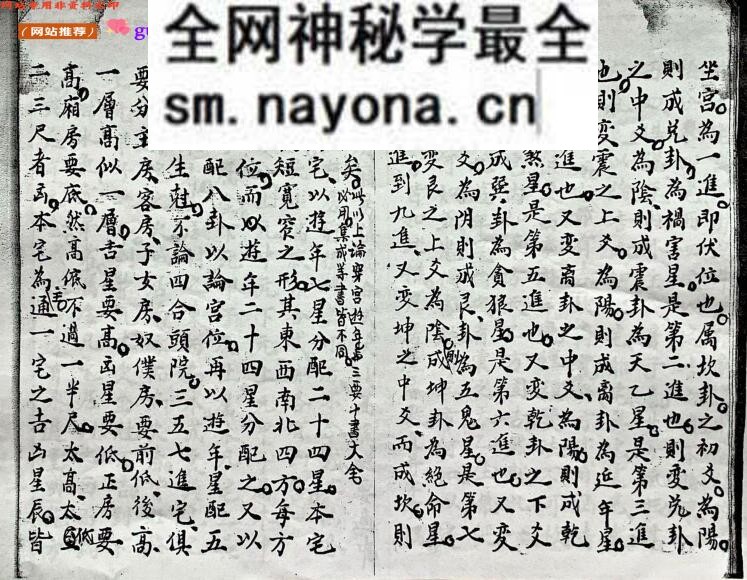 网站专用非资料水印
(网站推荐)
gu
全网神秘学最全
sm.nayona.cn
坐宫為一進即伏位也属坎卦之初爻為陽
則成兑卦為禍害星是第二進也則变兑卦
之中爻為陰則成震卦為天乙星是第三進
也則变震之上爻為陽則成离卦為近年星
進也又变离卦之中爻為陽則成乾
煞星是第五進也又变乾卦之下爻
成巽卦為貪狼星是第六進也又变
爻為阴則成艮卦為五鬼星是第七
变艮之上爻為陰則成坤卦為絶命星
進到九進又变坤之中爻而成坎則
矣此以上論穿宫遊年与三要十書大仝
必用集成等書皆不同
宅以遊年七星分配二十四星本宅
短寬窄之形其東西南北四方每方
位而以遊年二十四星分配之又以
配八卦以論宫位再以遊年星配五
生尅不論四合頭院三五七進宅俱
要分主房客房子女房奴僕房要前低後高
一層高似一層吉星要高凶星要低正房要
高廂房要底然高低不過一半尺太高太低
二三尺者凶本宅為主通一宅之吉凶星辰皆